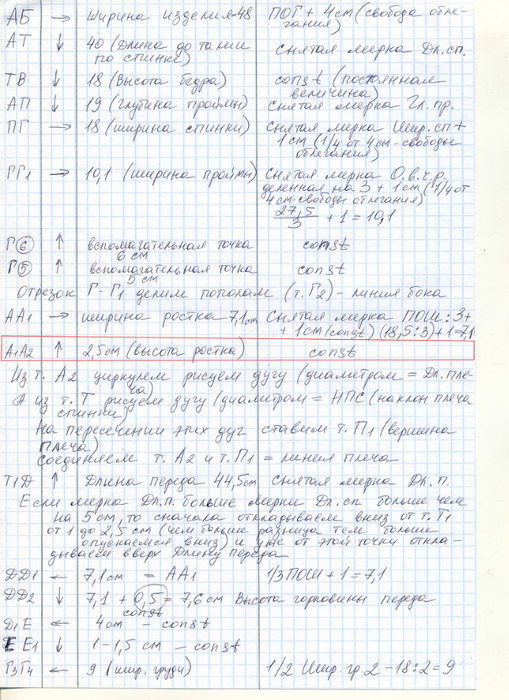 АБ → ширина изделия-48 ПОГ + 4см (свобода обле-
гания)
АТ ↓ 40 (Длина до талии снятая мерка Дл.сп.
по спинке)
ТВ ↓ 18 (Высота бедра) const (постоянная
величина)
АП ↓ 19 (глубина проймы) снятая мерка Гл. пр.
ПГ → 18 (ширина спинки) снятая мерка Шир. сп +
1см (1/4 от 4см-свободы
облегания)
ГГ1 → 10,1 (ширина проймы) снятая мерка О.в.ч.р.
деленная на 3 + 1см (1/4 от
4см-свободы облегания)
27,5/3 + 1 = 10,1
Г⑥ ↑ вспомагательная точка const
6 см
Г⑤ ↑ вспомагательная точка const
5 см
Отрезок Г-Г1 делим пополам (т.Г2) - линия бока
АА1 → ширина ростка 7,1см Снятая мерка ПОШ:3+
+ 1см (const) (18,5:3)+1=7,1
А1А2 ↑ 2,5см (высота ростка) const
Из т. А2 циркулем рисуем дугу (диаметром = Дл.пле-
ча)
А из т. Т рисуем дугу (диаметром = НПС (наклон плеча
спинки)
На пересечении этих дуг ставим т. П1 (вершина
плеча)
Соединяем т. А2 и т. П1 = линия плеча
Т1Д ↑ Длина переда 44,5см Снятая мерка Дл. п.
Если мерка Дл.п. больше мерки Дл.сп больше чем
на 5см, то сначала откладываем вниз от т. Т1
от 1 до 2,5 см (чем больше разница тем больше
опускаемся вниз) и уже от этой точки откла-
дываем вверх Длину переда
ДД1 ← 7,1см = АА1 1/3 ПОШ + 1 = 7,1
ДД2 ↓ 7,1 + 0,5 = 7,6см Высота горловины переда
const
Д1Е ← 4см - const
ЕЕ1 ↓ 1-1,5см - const
Г3Г4 ← 9 (шир. груди) 1/2 Шир. гр.2 - 18:2=9